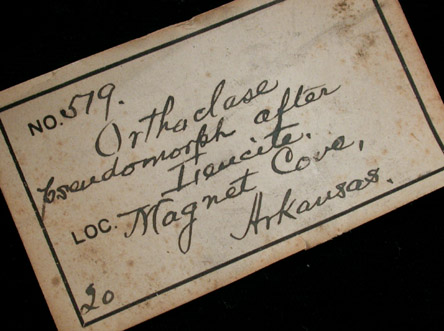 NO. 579.
Orthoclase
pseudomorph after
Leucite.
LOC. Magnet Cove,
Arkansas.
20